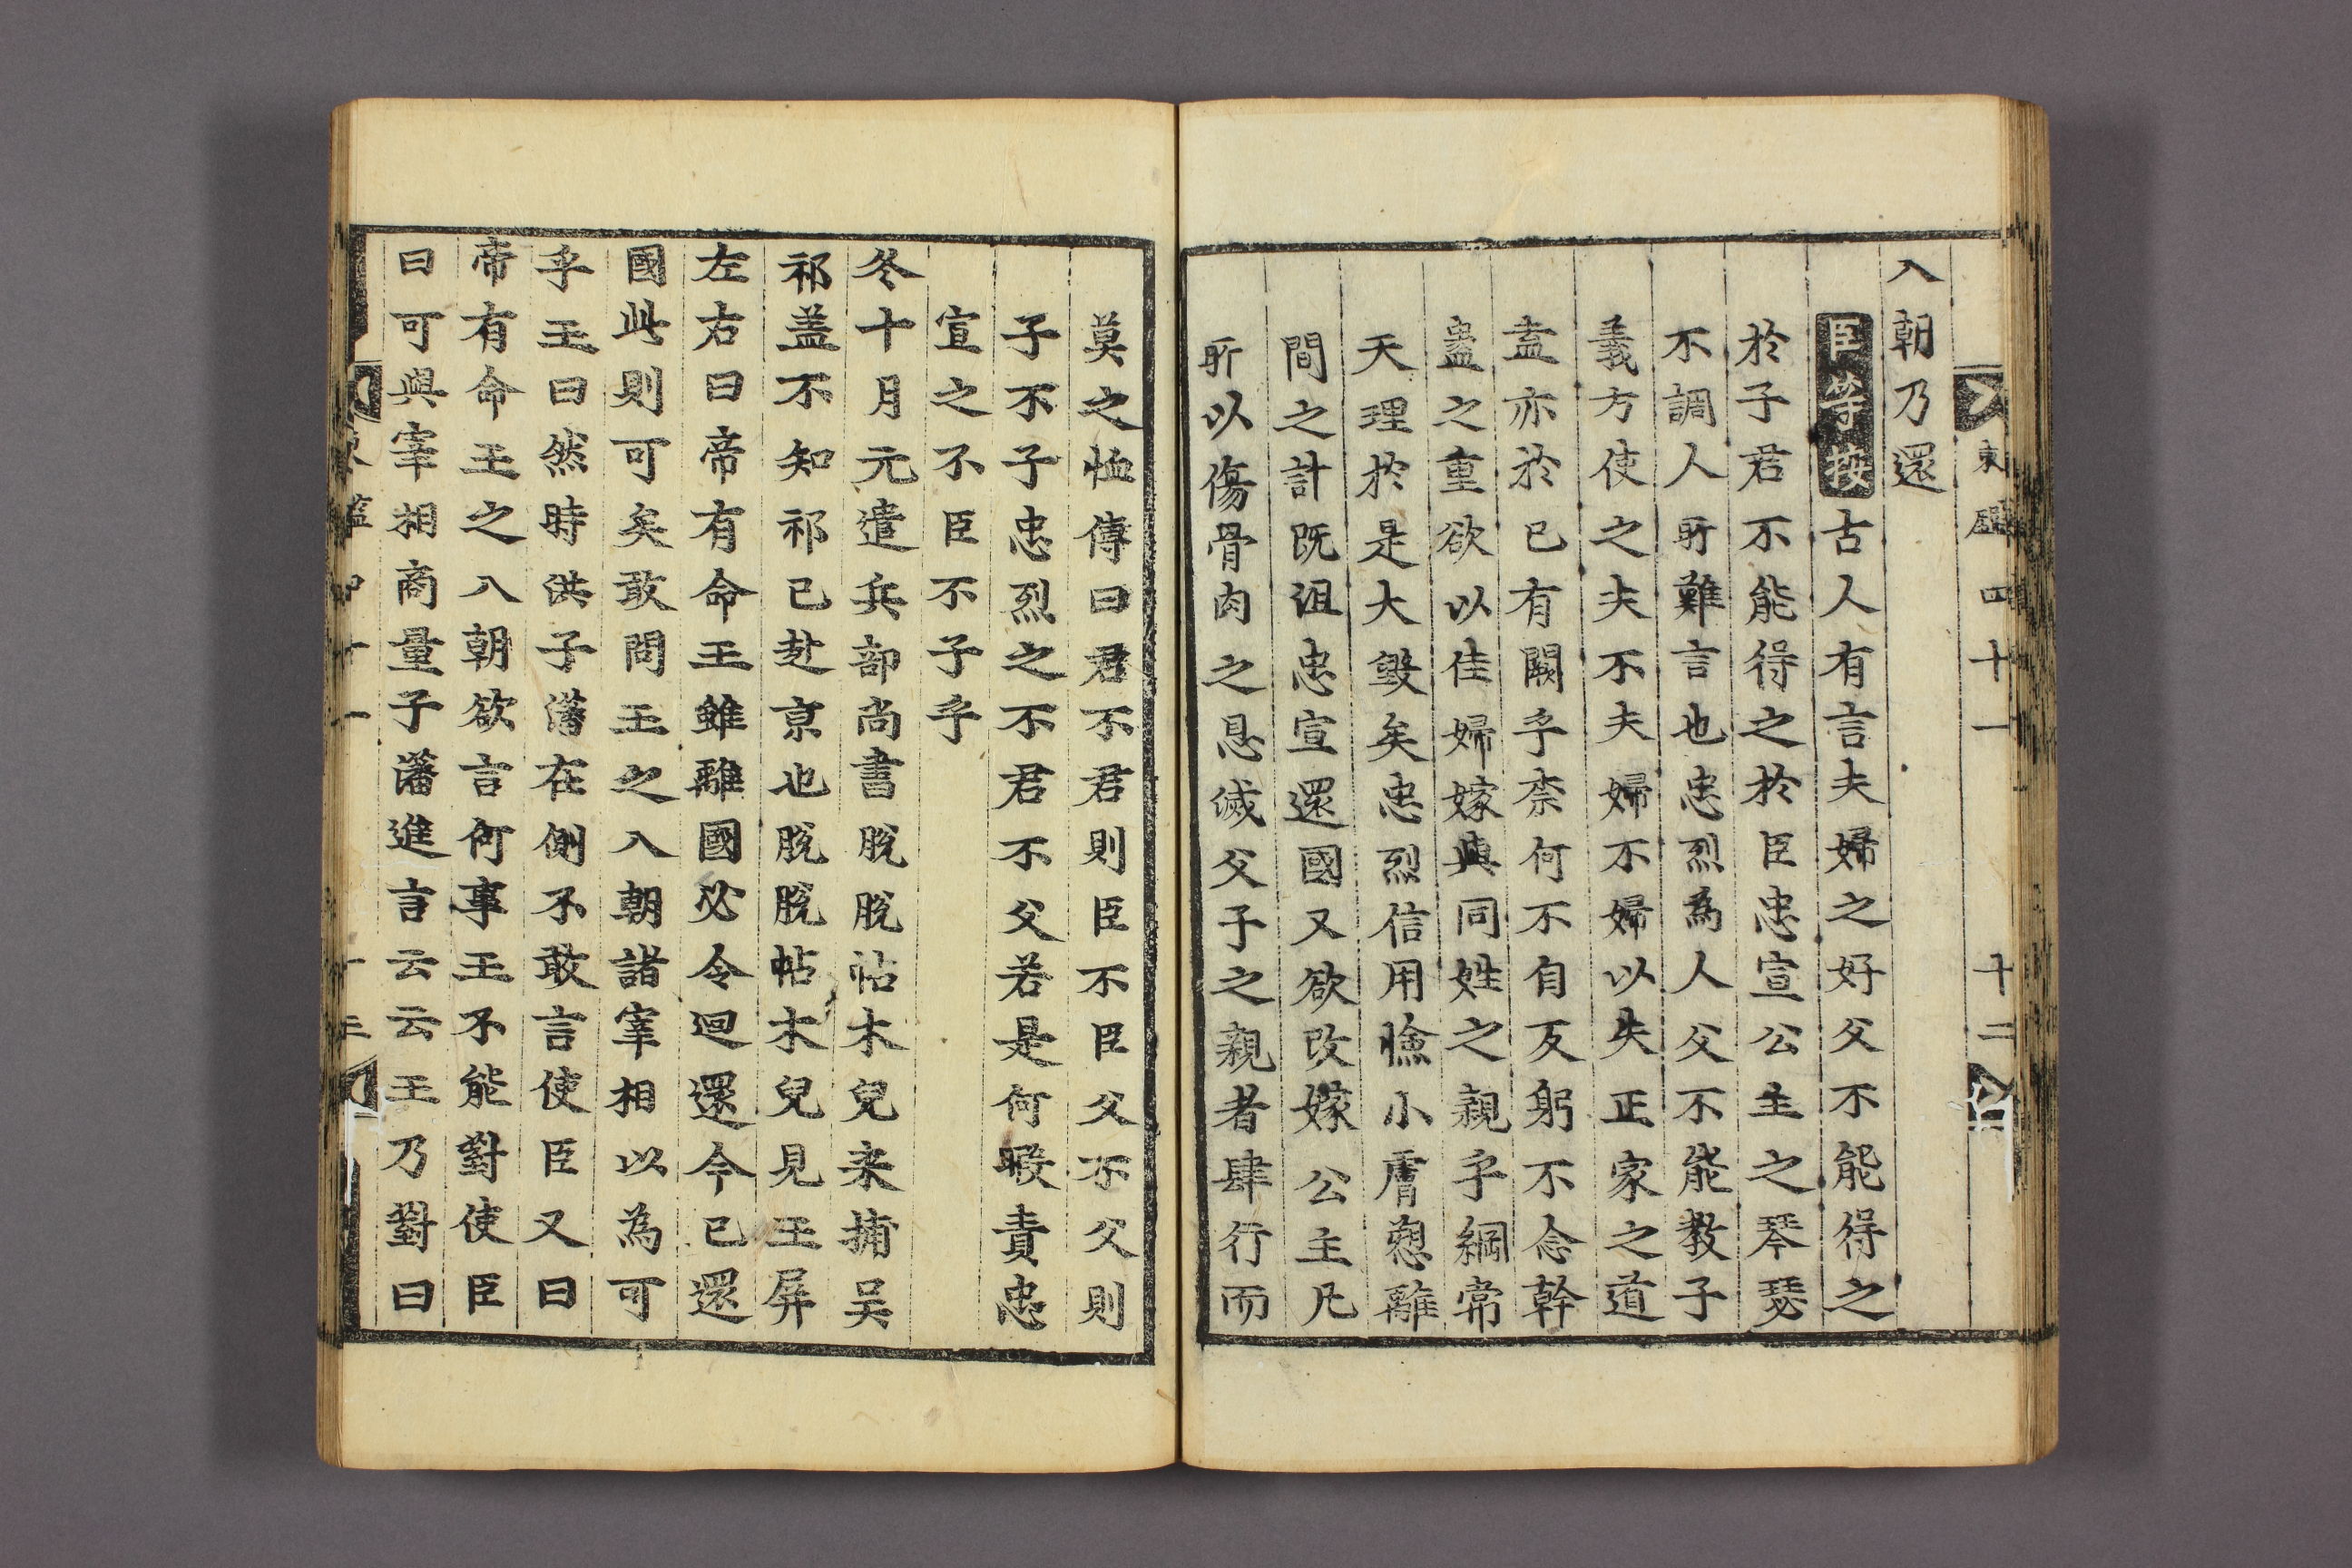 東鑑四十一 十二
入朝乃還
臣等按古人有言夫婦之好父不能得之
於子君不能得之於臣忠宣公主之琴瑟
不調人所難言也忠烈為人父不能教子
義方使之夫不夫婦不婦以失正家之道
盖亦於已有闕乎柰何不自反躬不念幹
蠱之重欲以佳婦嫁與同姓之親乎綱常
天理於是大毀矣忠烈信用憸小膚愬離
間之計既沮忠宣還國又欲改嫁公主凡
所以傷骨肉之恩滅父子之親者肆行而
莫之恤傳曰君不君則臣不臣父不父則
子不子忠烈之不君不父若是何暇責忠
宣之不臣不子乎
冬十月元遣兵部尚書脫脫帖木兒来捕吴
祁盖不知祁已赴京也脫脫帖木兒見王屏
左右曰帝有命王雖離國必令迴還今已還
國此則可矣敢問王之入朝諸宰相以為可
乎王曰然時洪子藩在側不敢言使臣又曰
帝有命王之入朝欲言何事王不能對使臣
曰可與宰相商量子藩進言云云王乃對曰